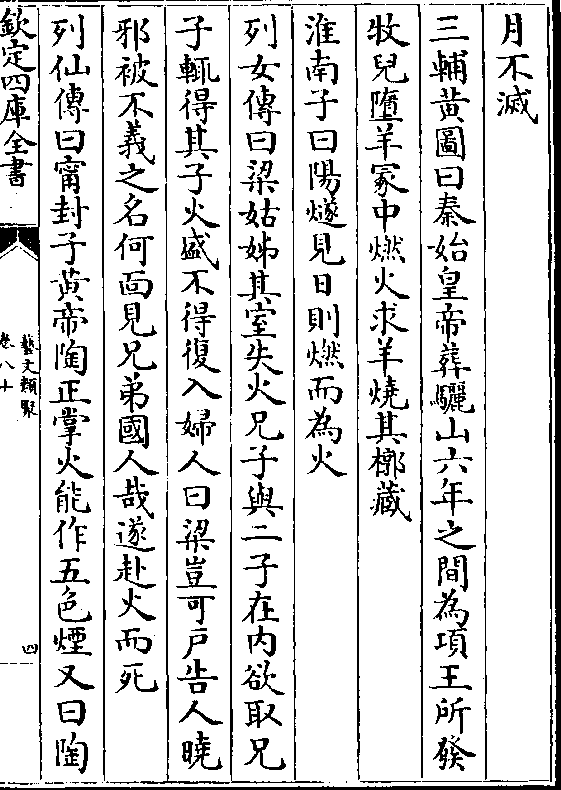 月不滅
三輔黃圖曰秦始皇帝葬驪山六年之間為項王所發
牧兒墮羊冢中燃火求羊燒其槨藏
淮南子曰陽燧見日則燃而為火
列女傳曰梁姑姊其室失火兄子與二子在内欲取兄
子輒得其子火盛不得復入婦人曰梁豈可户告人曉
邪被不義之名何面見兄弟國人哉遂赴火而死
列仙傳曰甯封子黄帝陶正掌火能作五色煙又曰陶
欽定四庫全書
藝文類聚
卷八十
四